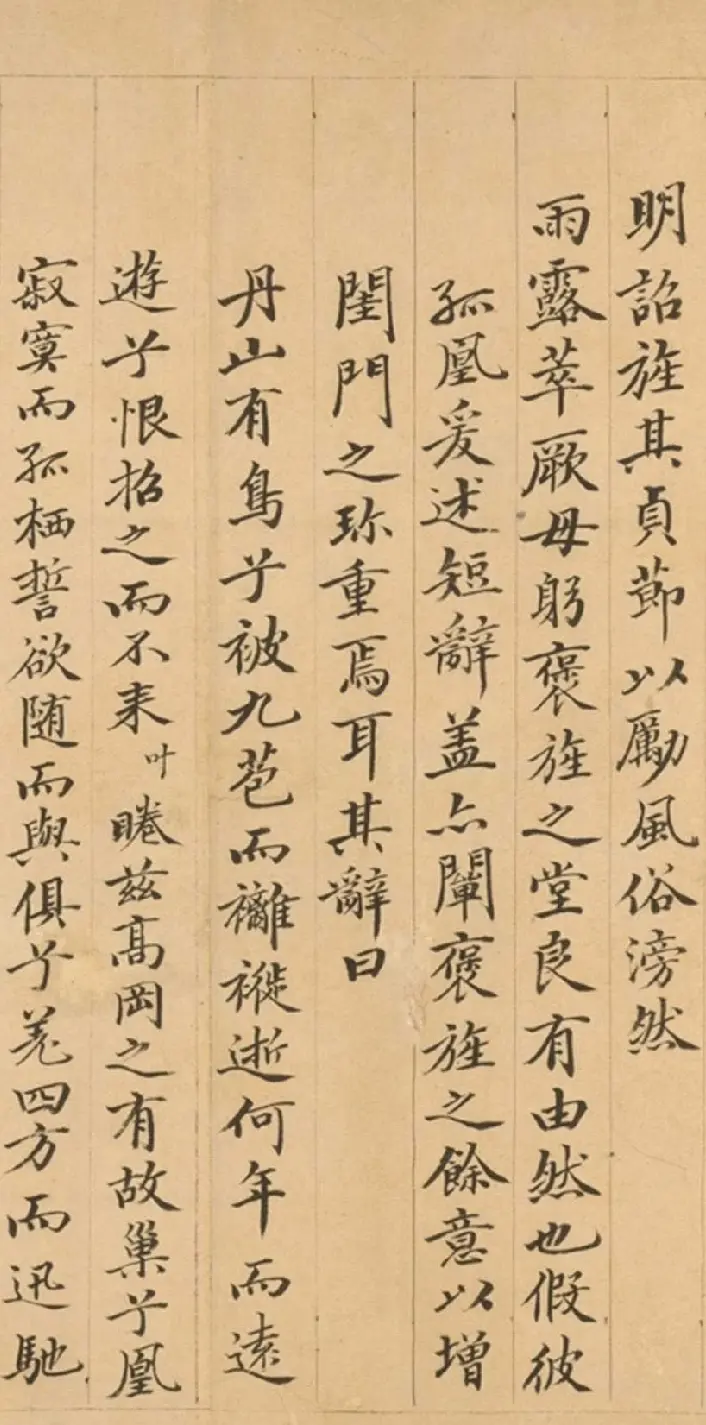 明詔旌其貞節以勵風俗滂然
雨露萃厥母躬褒旌之堂良有由然也假彼
孤凰爰述短辭盖亦闡褒旌之餘意以增
閨門之珎重焉耳其辭曰
丹山有鳥兮被九苞而襳褷逝何年而遠
遊兮恨招之而不来叶睠兹高岡之有故巢兮凰
寂寞而孤栖誓欲随而與俱兮羌四方而迅馳